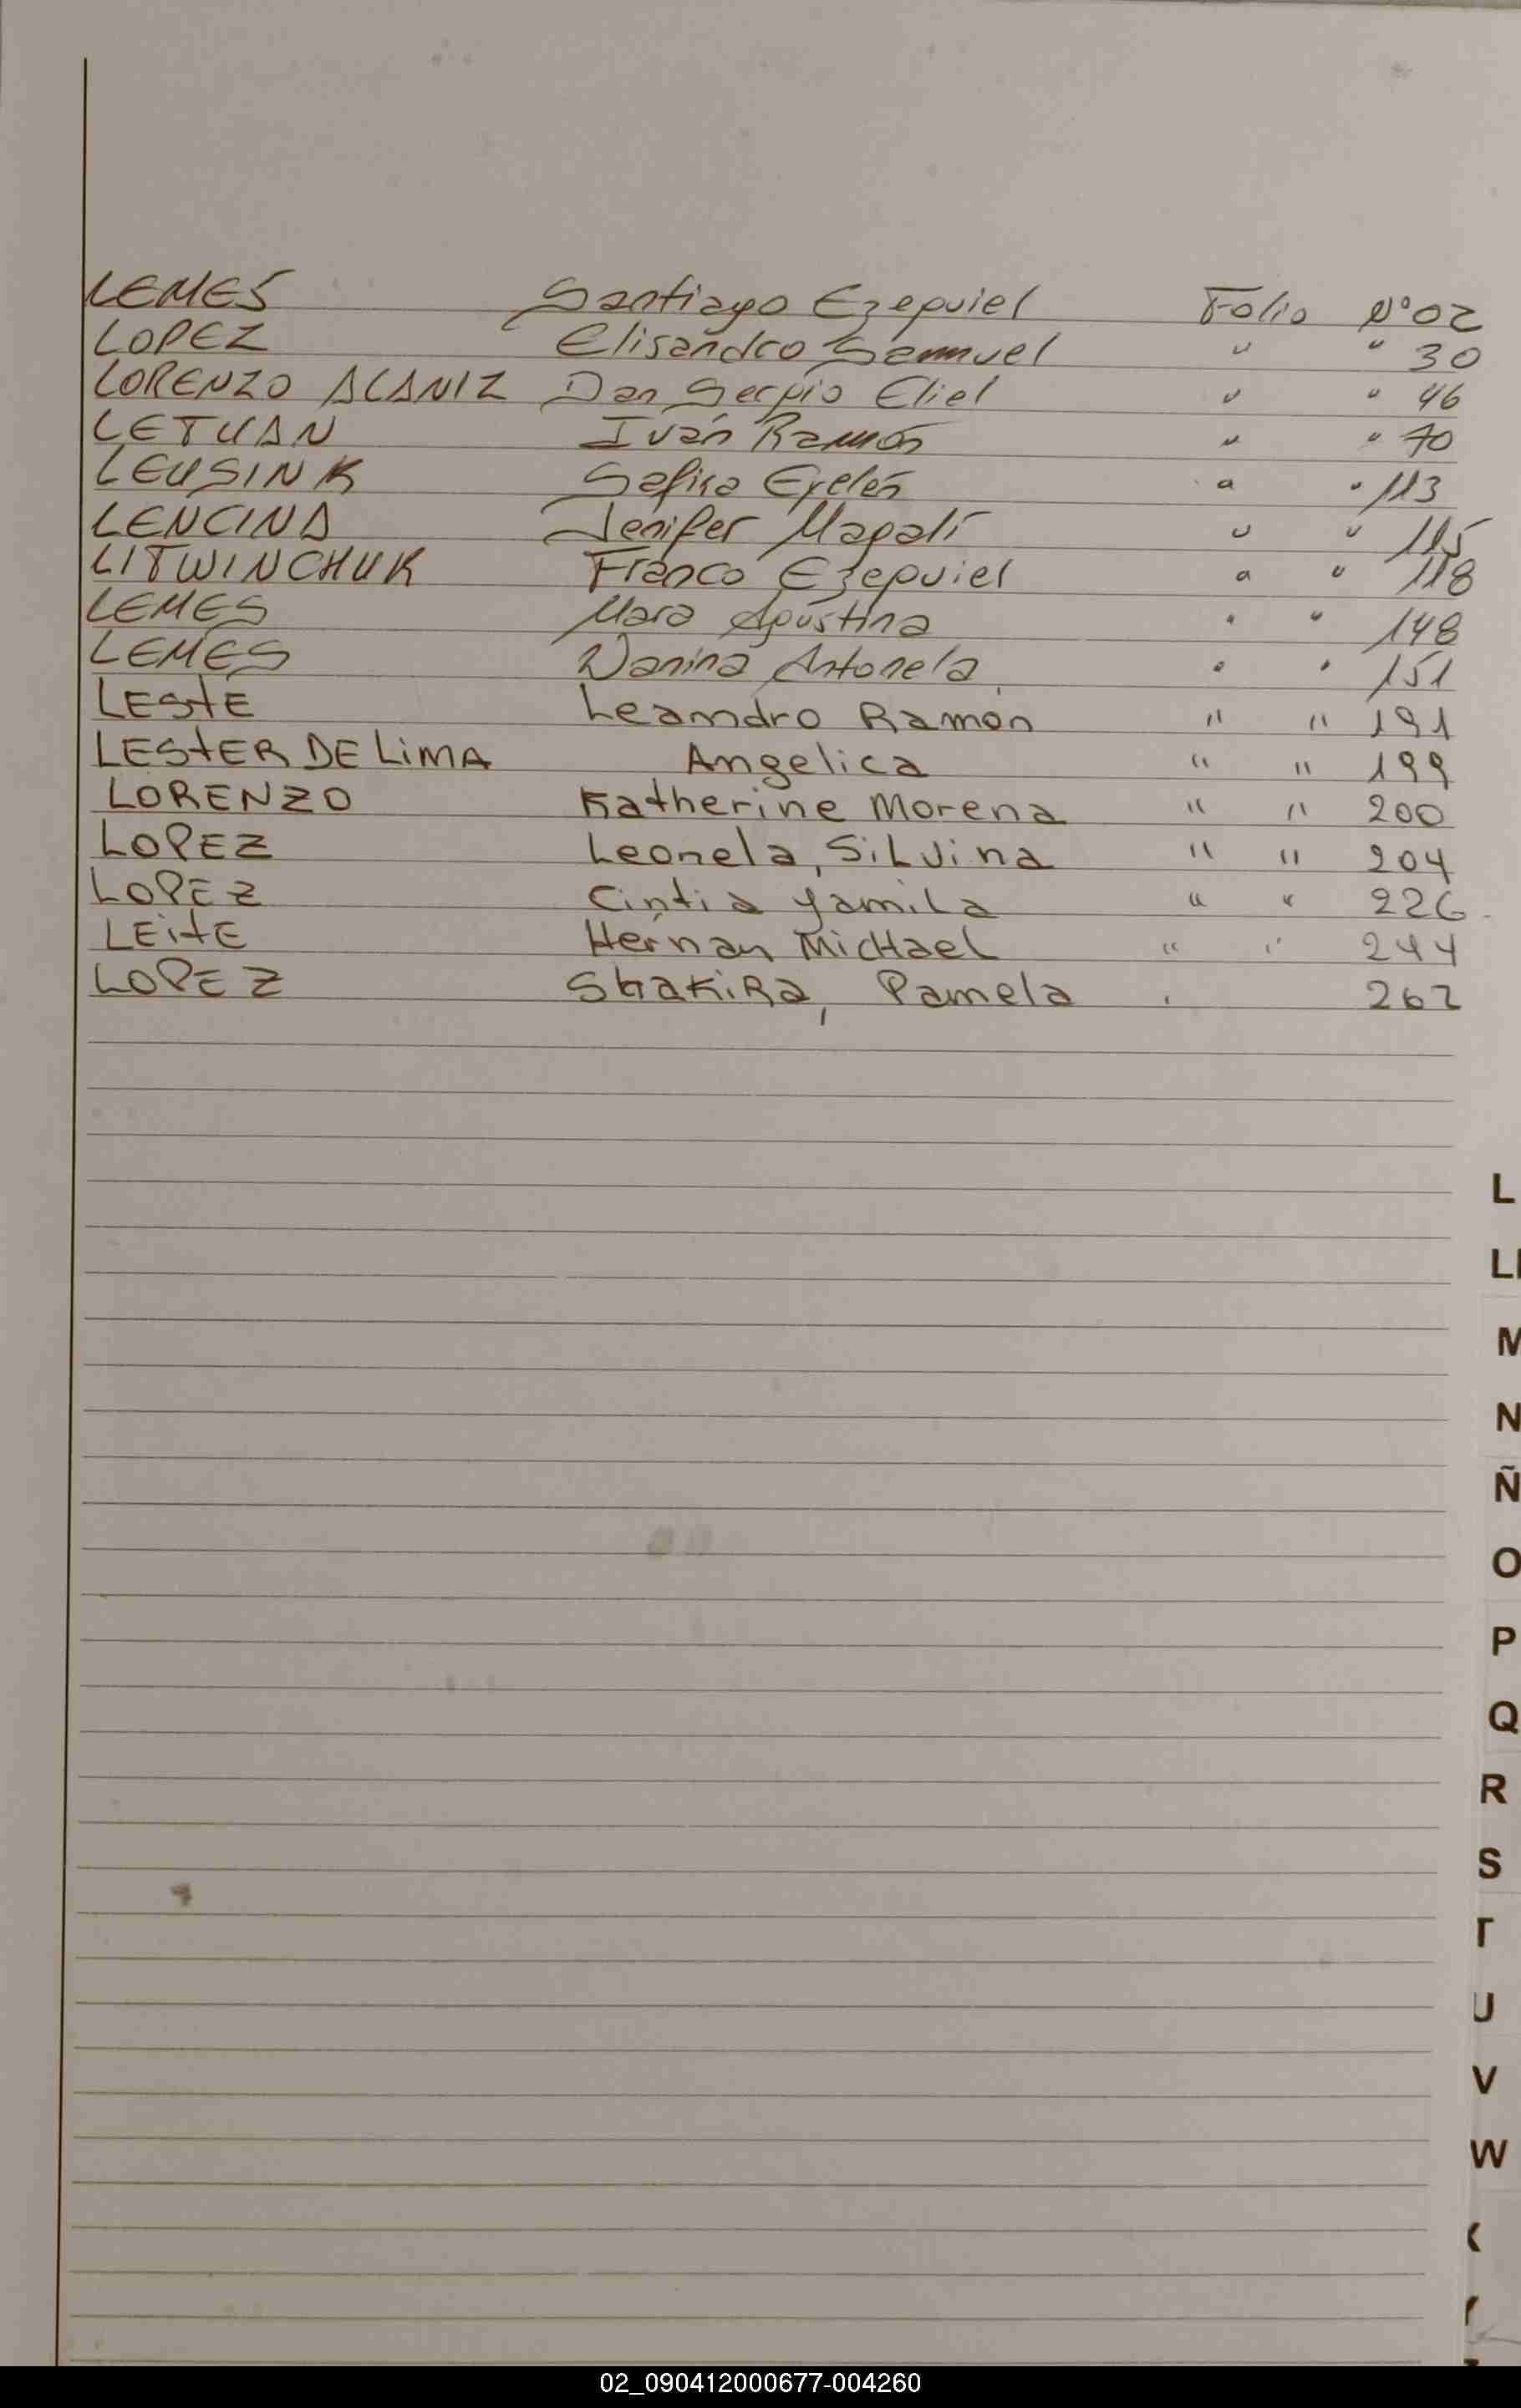 LEMES Santiago Ezequiel Folio Nº 02
LOPEZ Elisandro Samuel " " 30
LORENZO ALANIZ Dan Sergio Eliel " " 46
LETUAN Iván Ramón " " 70
LEUSINK Safira Eyelén " " 113
LENCINA Jenifer Magalí " " 115
LITWINCHUK Franco Ezequiel " " 118
LEMES Mara Agustina " " 148
LEMES Wanina Antonela " " 151
LESTE Leandro Ramón " " 191
LESTER DE LIMA Angelica " " 199
LORENZO Katherine Morena " " 200
LOPEZ Leonela, Silvina " " 204
LOPEZ Cintia Yamila " " 226
LEITE Hernan Michael " " 244
LOPEZ Shakira, Pamela 262
L
Ll
M
N
Ñ
O
P
Q
R
S
T
U
V
W
02_090412000677-004260